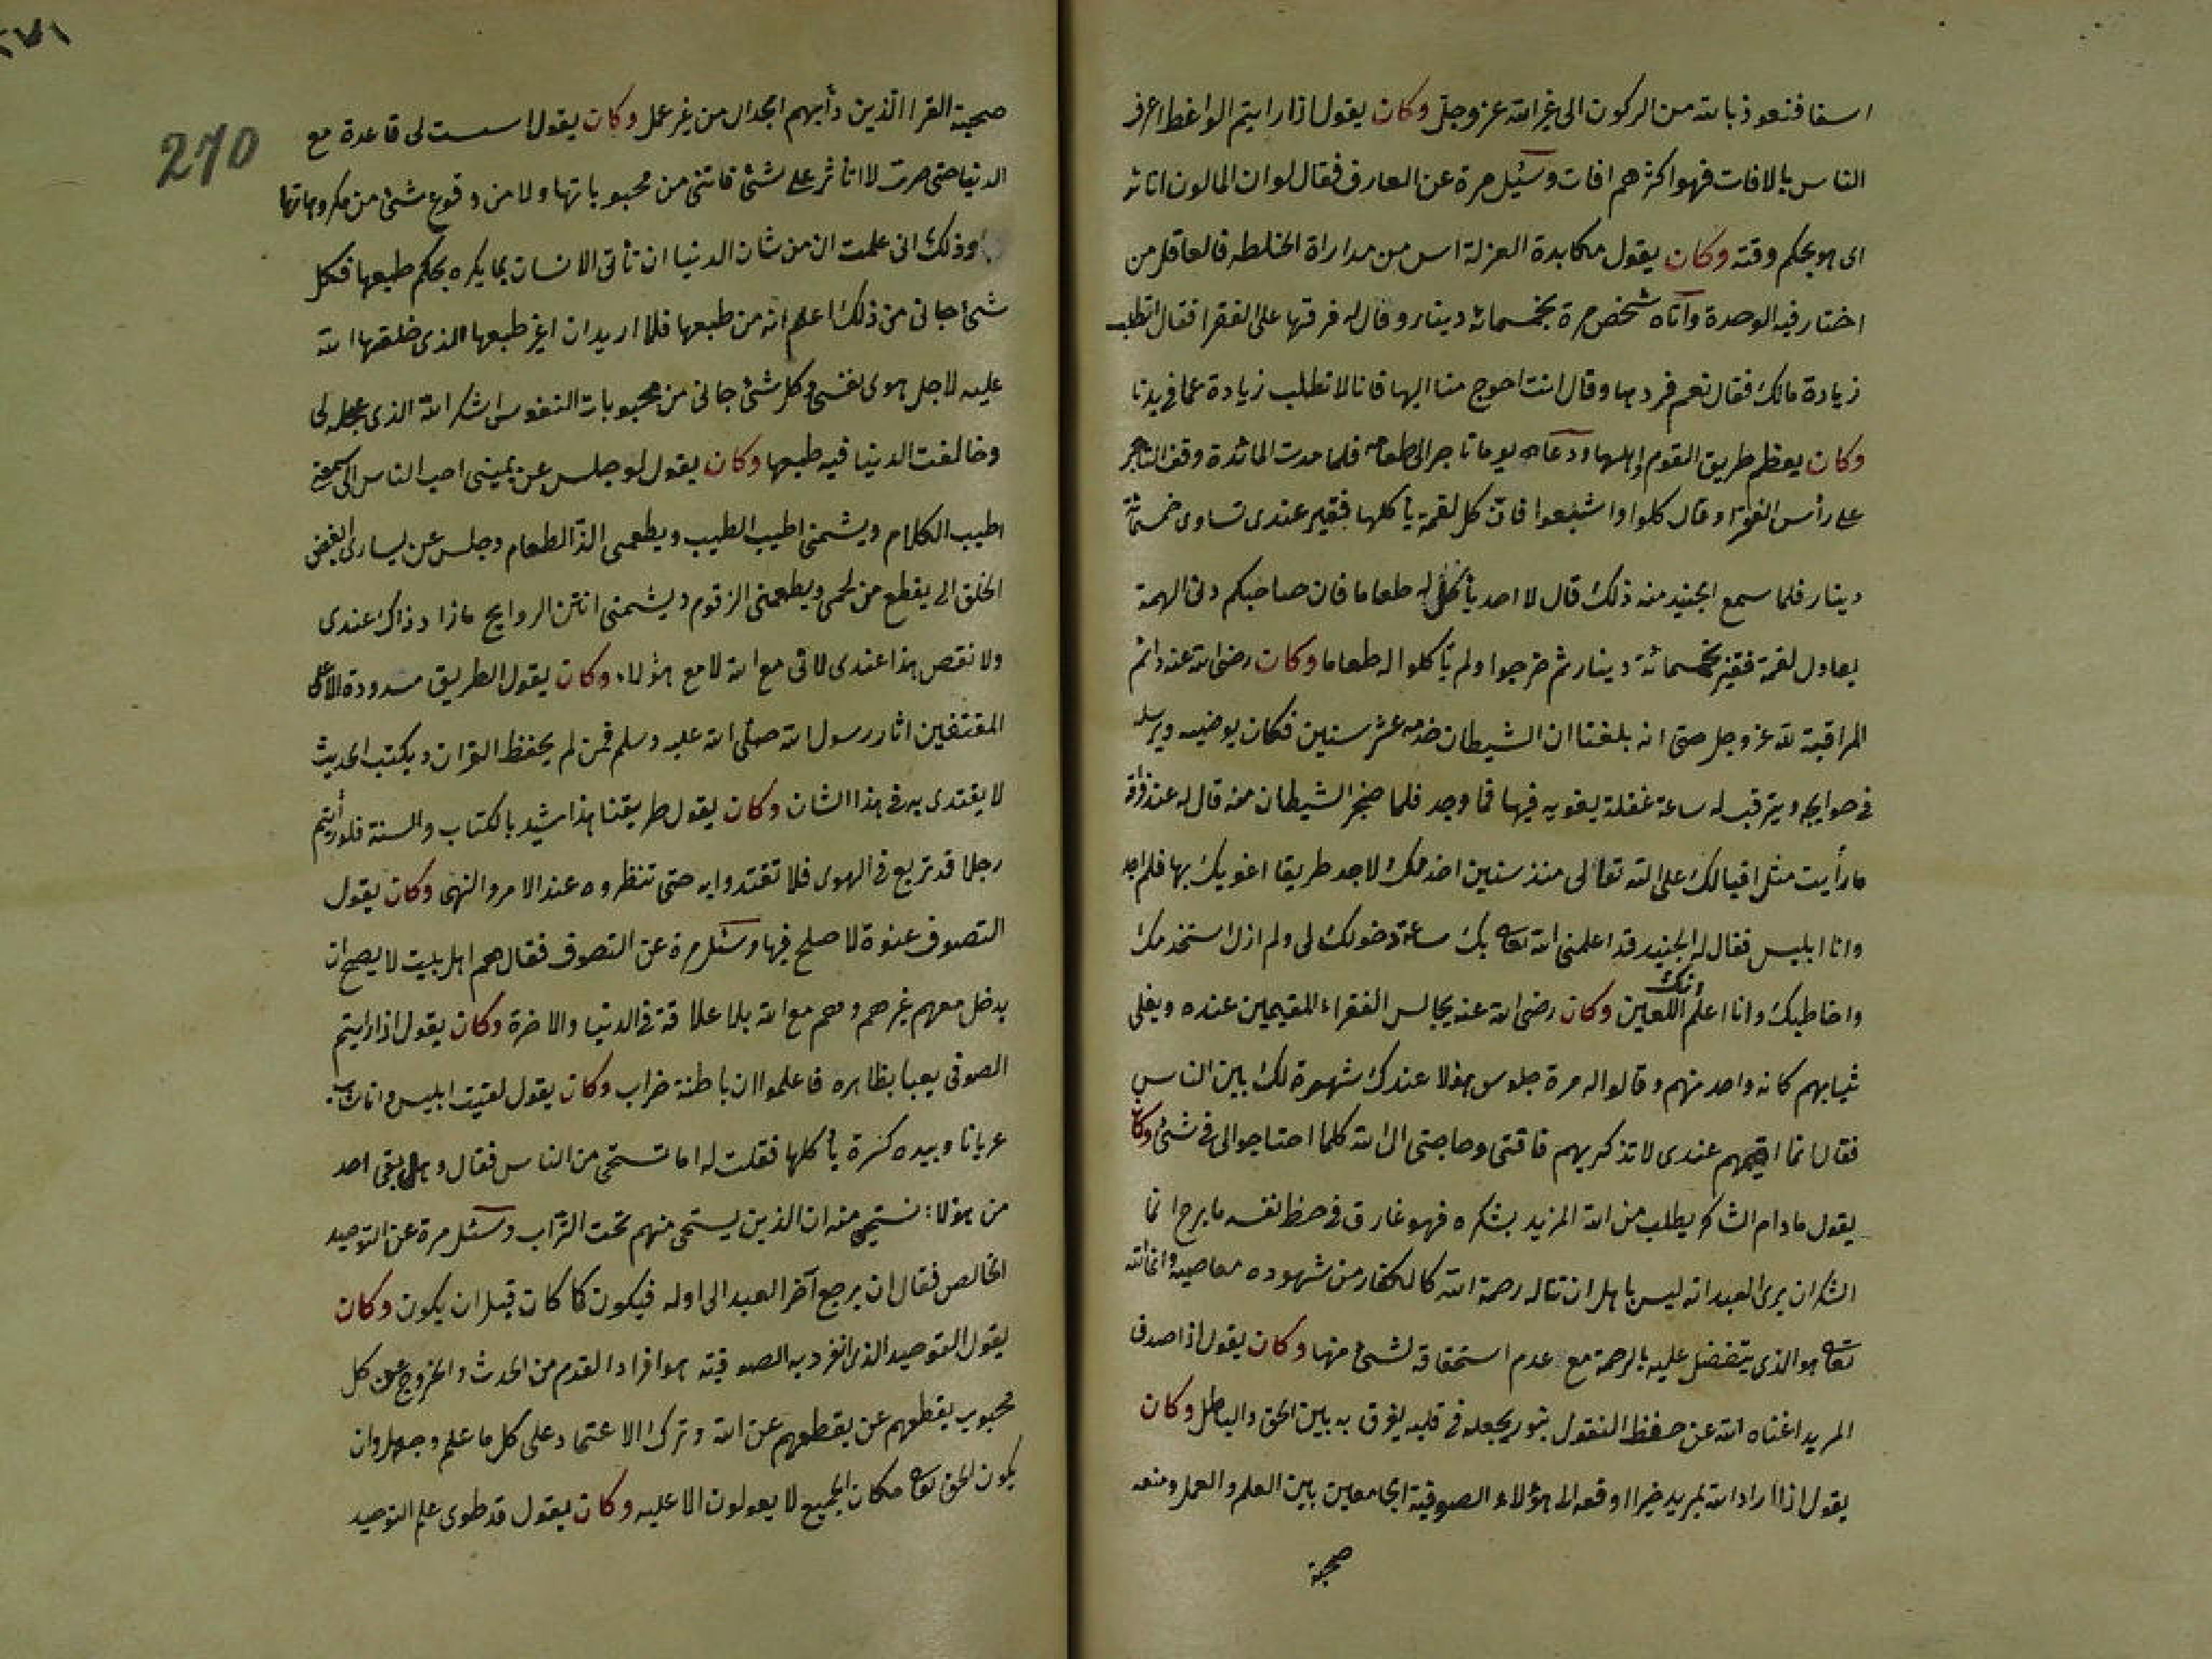 اسفا فنعوذ بالله من الركون الى غير الله عز وجل وكان يقول اذا رايتم الواعظ اعرف
الناس بالافات فهو اكثرهم افات وسئيل مرة عن العارف فقال لون الماء لون انائه
اى هو بحكم وقته وكان يقول مكابدة العزلة اس من مداراة الخلطه فالعاقل من
اختار فيه الوحدة وآتاه شخص مرة بخمسمائة دينار وقال له فرقها على الفقرا فقال اتطلب
زيادة مالك فقال نعم فردها وقال انت احوج منا اليها فانا لا نطلب زيادة عما فى يدنا
وكان يعظم طريق القوم واهلها ودعاه يوما تاجر الى طعامه فلما مدت المائدة وقف التاجر
على رأس الفقرا وقال كلوا واشبعوا فان كل لقمة يأكلها فقير عندى تساوى خمسمائة
دينار فلما سمع الجنيد منه ذلك قال لا احد يأكل له طعاما فان صاحبكم دنى الهمة
يعادل لقمة فقير بخمسمائة دينار ثم خرجوا ولم يأكلوا له طعاما وكان رضى الله عنه دائم
المراقبة لله عز وجل حتى انه بلغنا ان الشيطان خدمه عشر سنين فكان يوضيه ويرسله
فى حوايجه ويترقب له ساعة غفلة يغويه فيها فما وجد فلما ضجر الشيطان منه قال له عند فراقه
ما رأيت مثل اقبالك على الله تعالى منذ سنين اخدمك لاجد طريقا اغويك بها فلم اجد
وانا ابليس فقال له الجنيد قد اعلمنى الله تعالى بك ساعة دخولك لى ولم ازل استخدمك
واخاطبك وانا اعلم انك اللعين وكان رضى الله عنه يجالس الفقراء المقيمين عنده ويفلى
ثيابهم كانه واحد منهم وقالوا له مرة جلوس هولا عندك شهرة لك بين الناس
فقال انما اقيمهم عندى لاتذكر بهم فاقتى وحاجتى الى الله كلما احتاجوا الى شئ وكان
يقول ما دام الشاكر يطلب من الله المزيد بشكره فهو غارق فى حظ نفسه ما برح انما
الشكر ان يرى العبد انه ليس باهل ان تناله رحمة الله كالكفار من شهوده معاصيه وانما الله
تعالى هو الذى يتفضل عليه بالرحمة مع عدم استحقاقه لشئ منها وكان يقول اذا صدق
المريد اغناه الله عن حفظ النقول بنور يجعله فى قلبه يفرق به بين الحق والباطل وكان
يقول اذا اراد الله بمريد خيرا اوقعه الى هؤلاء الصوفية الجامعين بين العلم والعمل ومنعه
صحبة
270
صحبة القرا الذين دأبهم الجدال من غير عمل وكان يقول اسست لى قاعدة مع
الدنيا حتى صرت لا اتاثر على شئ فاتنى من محبوباتها ولا من وقوع شئ من مكروهاتها
وذلك انى علمت ان من شان الدنيا ان تأتى الانسان بما يكره بحكم طبعها فكل
شئ جانى من ذلك اعلم انه من طبعها فلا اريد ان اغير طبعها الذى خلقها الله
عليه لاجل هوى نفسى وكل شئ جانى من محبوبات النفوس اشكر الله الذى عجله لى
وخالفت الدنيا فيه طبعها وكان يقول لو جلس عن يمينى احب الناس الى يسمعنى
اطيب الكلام ويشمنى اطيب الطيب ويطعمنى الذ الطعام وجلس عن يسارى ابغض
الخلق الى يقطع من لحمى ويطعمنى الزقوم ويشمنى انتن الروايح ما زاد ذاك عندى
ولا نقص هذا عندى لانى مع الله لا مع هؤلاء وكان يقول الطريق مسدودة الا على
المقتفين اثار رسول الله صلى الله عليه وسلم فمن لم يحفظ القران ويكتب الحديث
لا يقتدى به فى هذا الشان وكان يقول طريقنا هذا مشيد بالكتاب والسنة فلو رأيتم
رجلا قد تربع فى الهوى فلا تقتدوا به حتى تنظروه عند الامر والنهى وكان يقول
التصوف عنوة لا صلح فيها وسئل مرة عن التصوف فقال هم اهل بيت لا يصح ان
يدخل معهم غيرهم وهم مع الله بلا علاقة فى الدنيا والاخرة وكان يقول اذا رايتم
الصوفى يعبا بظاهره فاعلموا ان باطنه خراب وكان يقول لقيت ابليس وانا شاب
عريانا وبيده كسرة يأكلها فقلت له اما تستحى من الناس فقال وهل بقى احد
من هولاء نستحى منه ان الذين يستحى منهم تحت التراب وسئل مرة عن التوحيد
الخالص فقال ان يرجع آخر العبد الى اوله فيكون كما كان قبل ان يكون وكان
يقول التوحيد الذى انفرد به الصوفية هو افراد القدم من الحدث والخروج عن كل
محبوب يقطعهم عن يقطعهم عن الله وترك الاعتماد على كل ما علم وجهل وان
يكون الحق تعالى مكان الجميع لا يعولون الا عليه وكان يقول قد طوى علم التوحيد